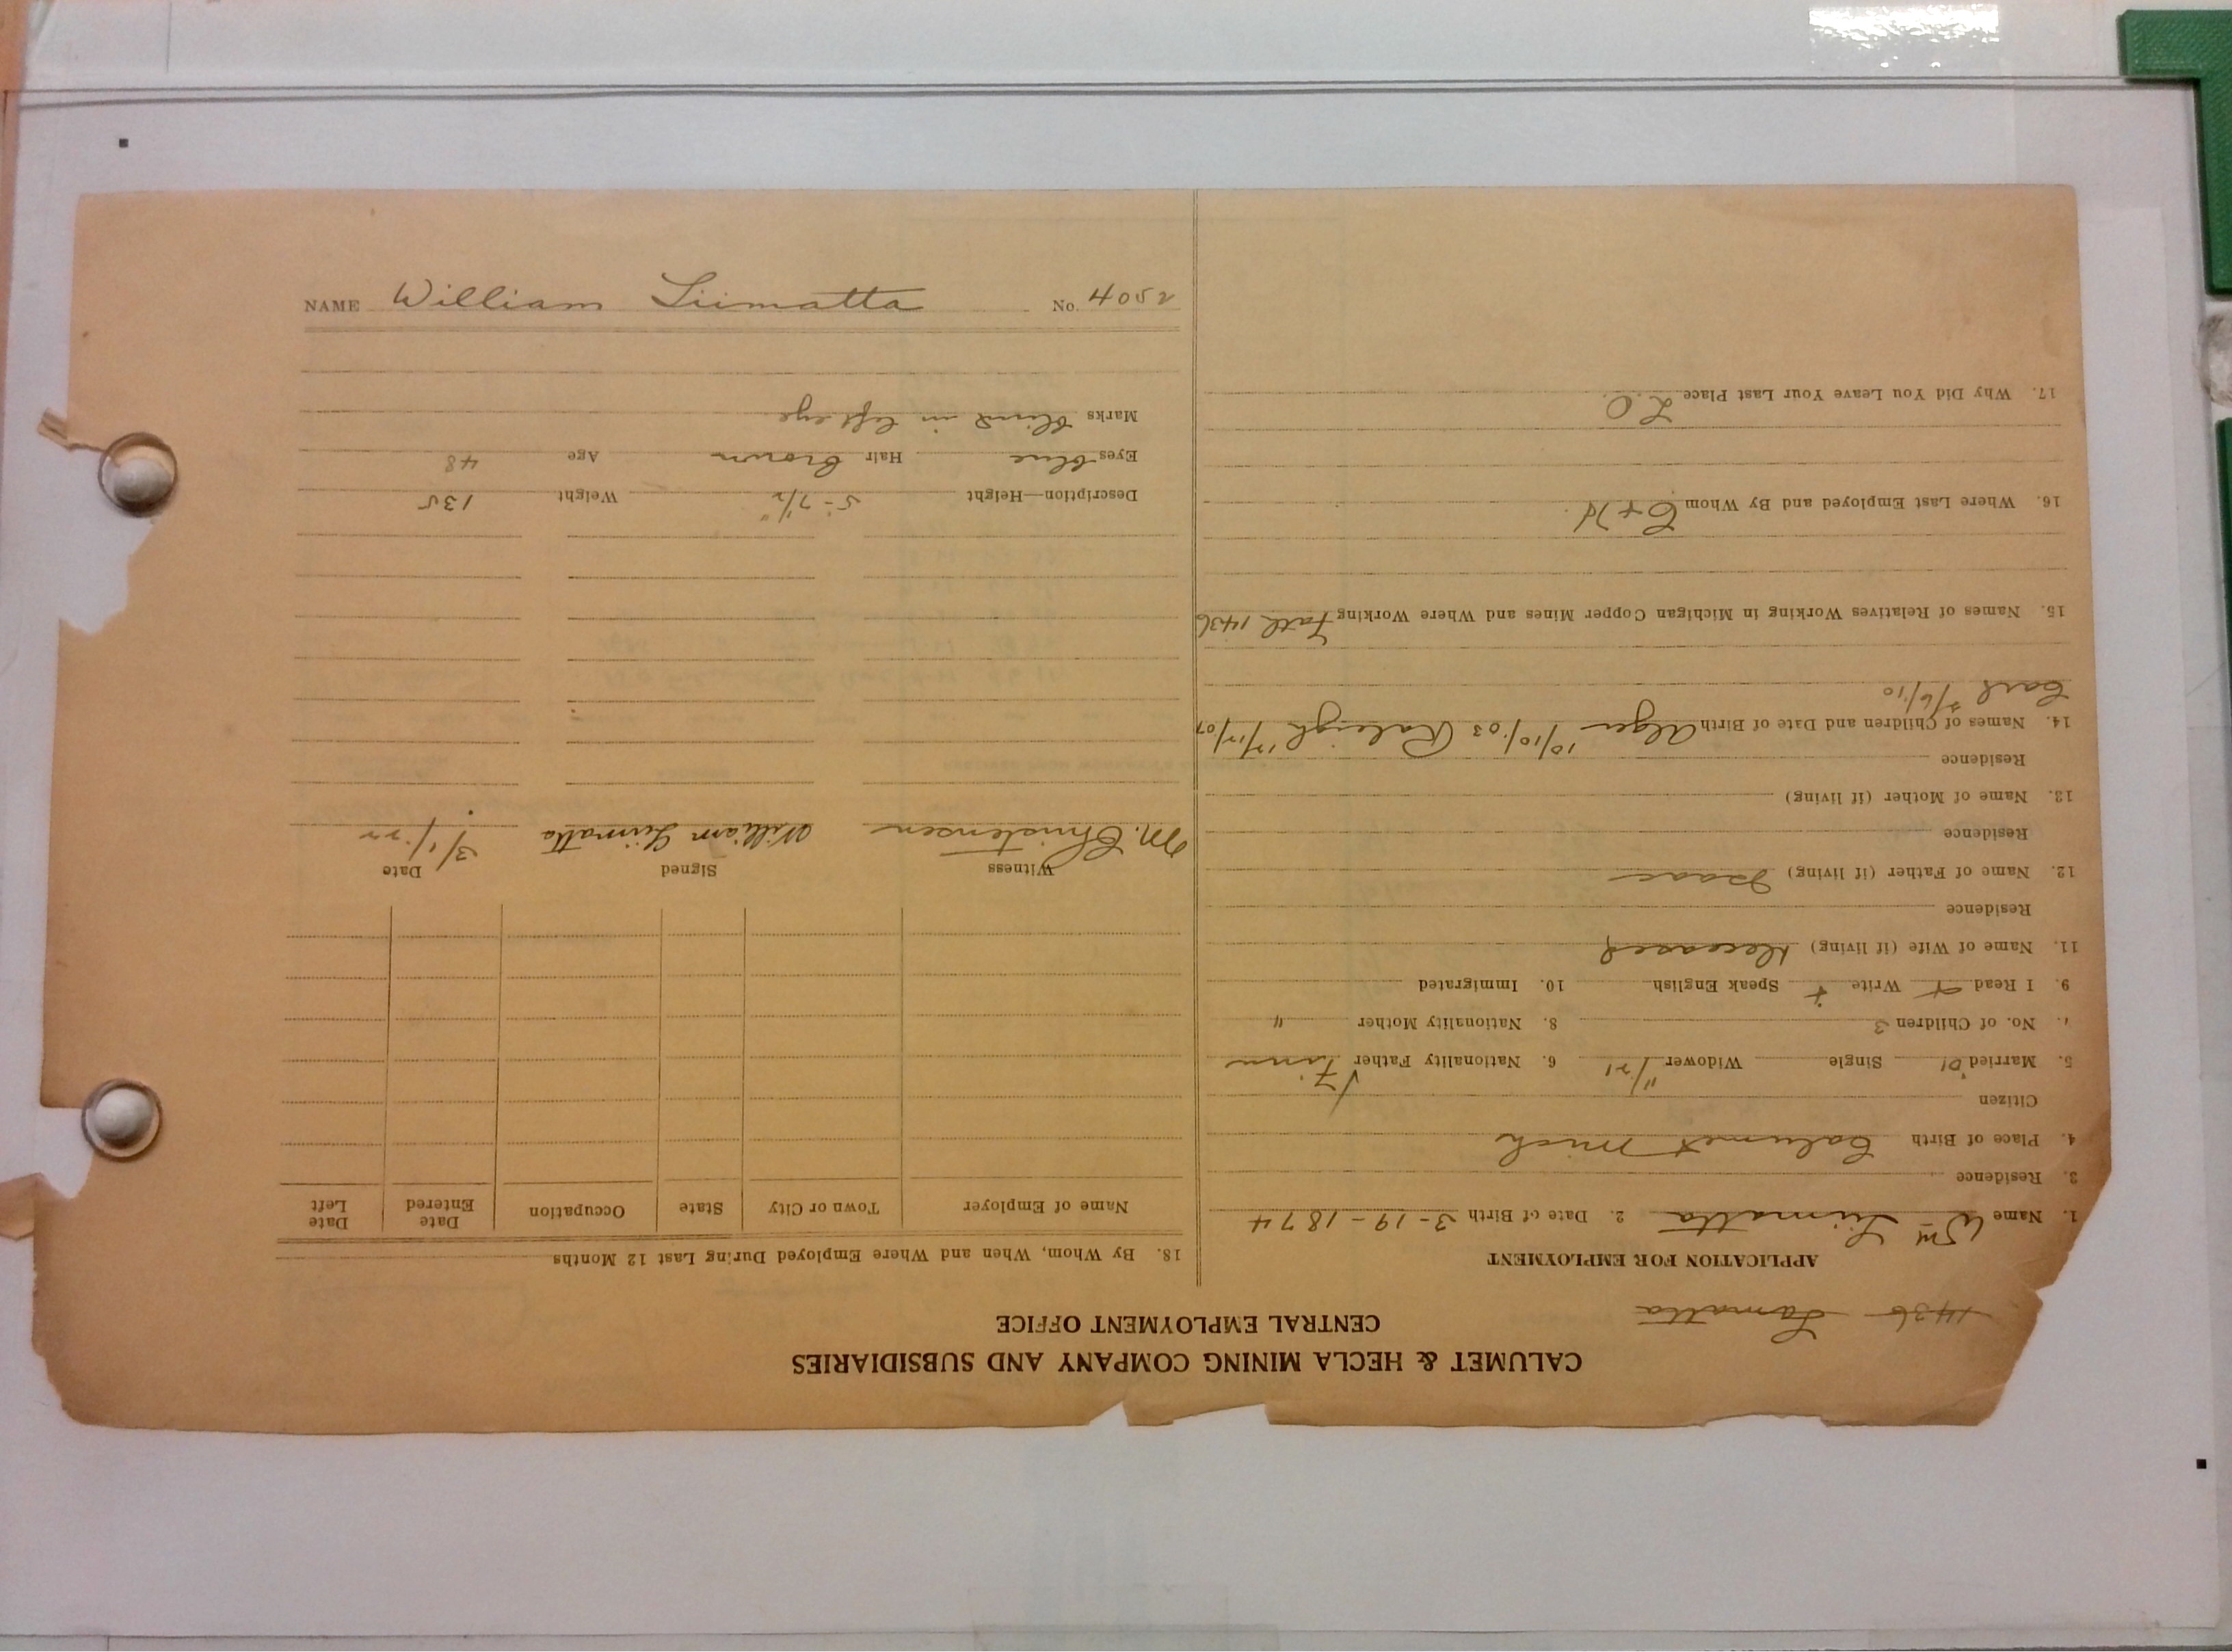 CALUMET & HECLA MINING COMPANY AND SUBSIDIARIES
CENTRAL EMPLOYMENT OFFICE
1436 Lamatta
APPLICATION FOR EMPLOYMENT
1. Name Wm Liimatta 2. Date of Birth 3-19-1874
3. Residence
4. Place of Birth Calumet Mich
Citizen
5. Married 01 Single Widower 11/21 6. Nationality Father Finn
7. No. of Children 3 8. Nationality Mother "
9. I Read + Write + Speak English 10. Immigrated
11. Name of Wife (if living) Deceased
Residence
12. Name of Father (if living) Isaac
Residence
13. Name of Mother (if living)
Residence
14. Names of Children and Date of Birth Alger 10/10/03 Raleigh 7/17/07
Carl 7/6/10
15. Names of Relatives Working in Michigan Copper Mines and Where Working Fath 1436
16. Where Last Employed and By Whom C+H
17. Why Did You Leave Your Last Place L.O.
18. By Whom, When and Where Employed During Last 12 Months
Name of Employer Town or City State Occupation Date Entered Date Left
Witness Signed Date
M. Christensen William Liimatta 3/1/22
Description—Height 5-7 1/2" Weight 135
Eyes blue Hair Brown Age 48
Marks blind in left eye
NAME William Liimatta No. 4052